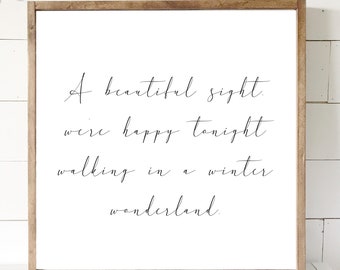 A beautiful sight.
were happy tonight
walking in a winter
wonderland.